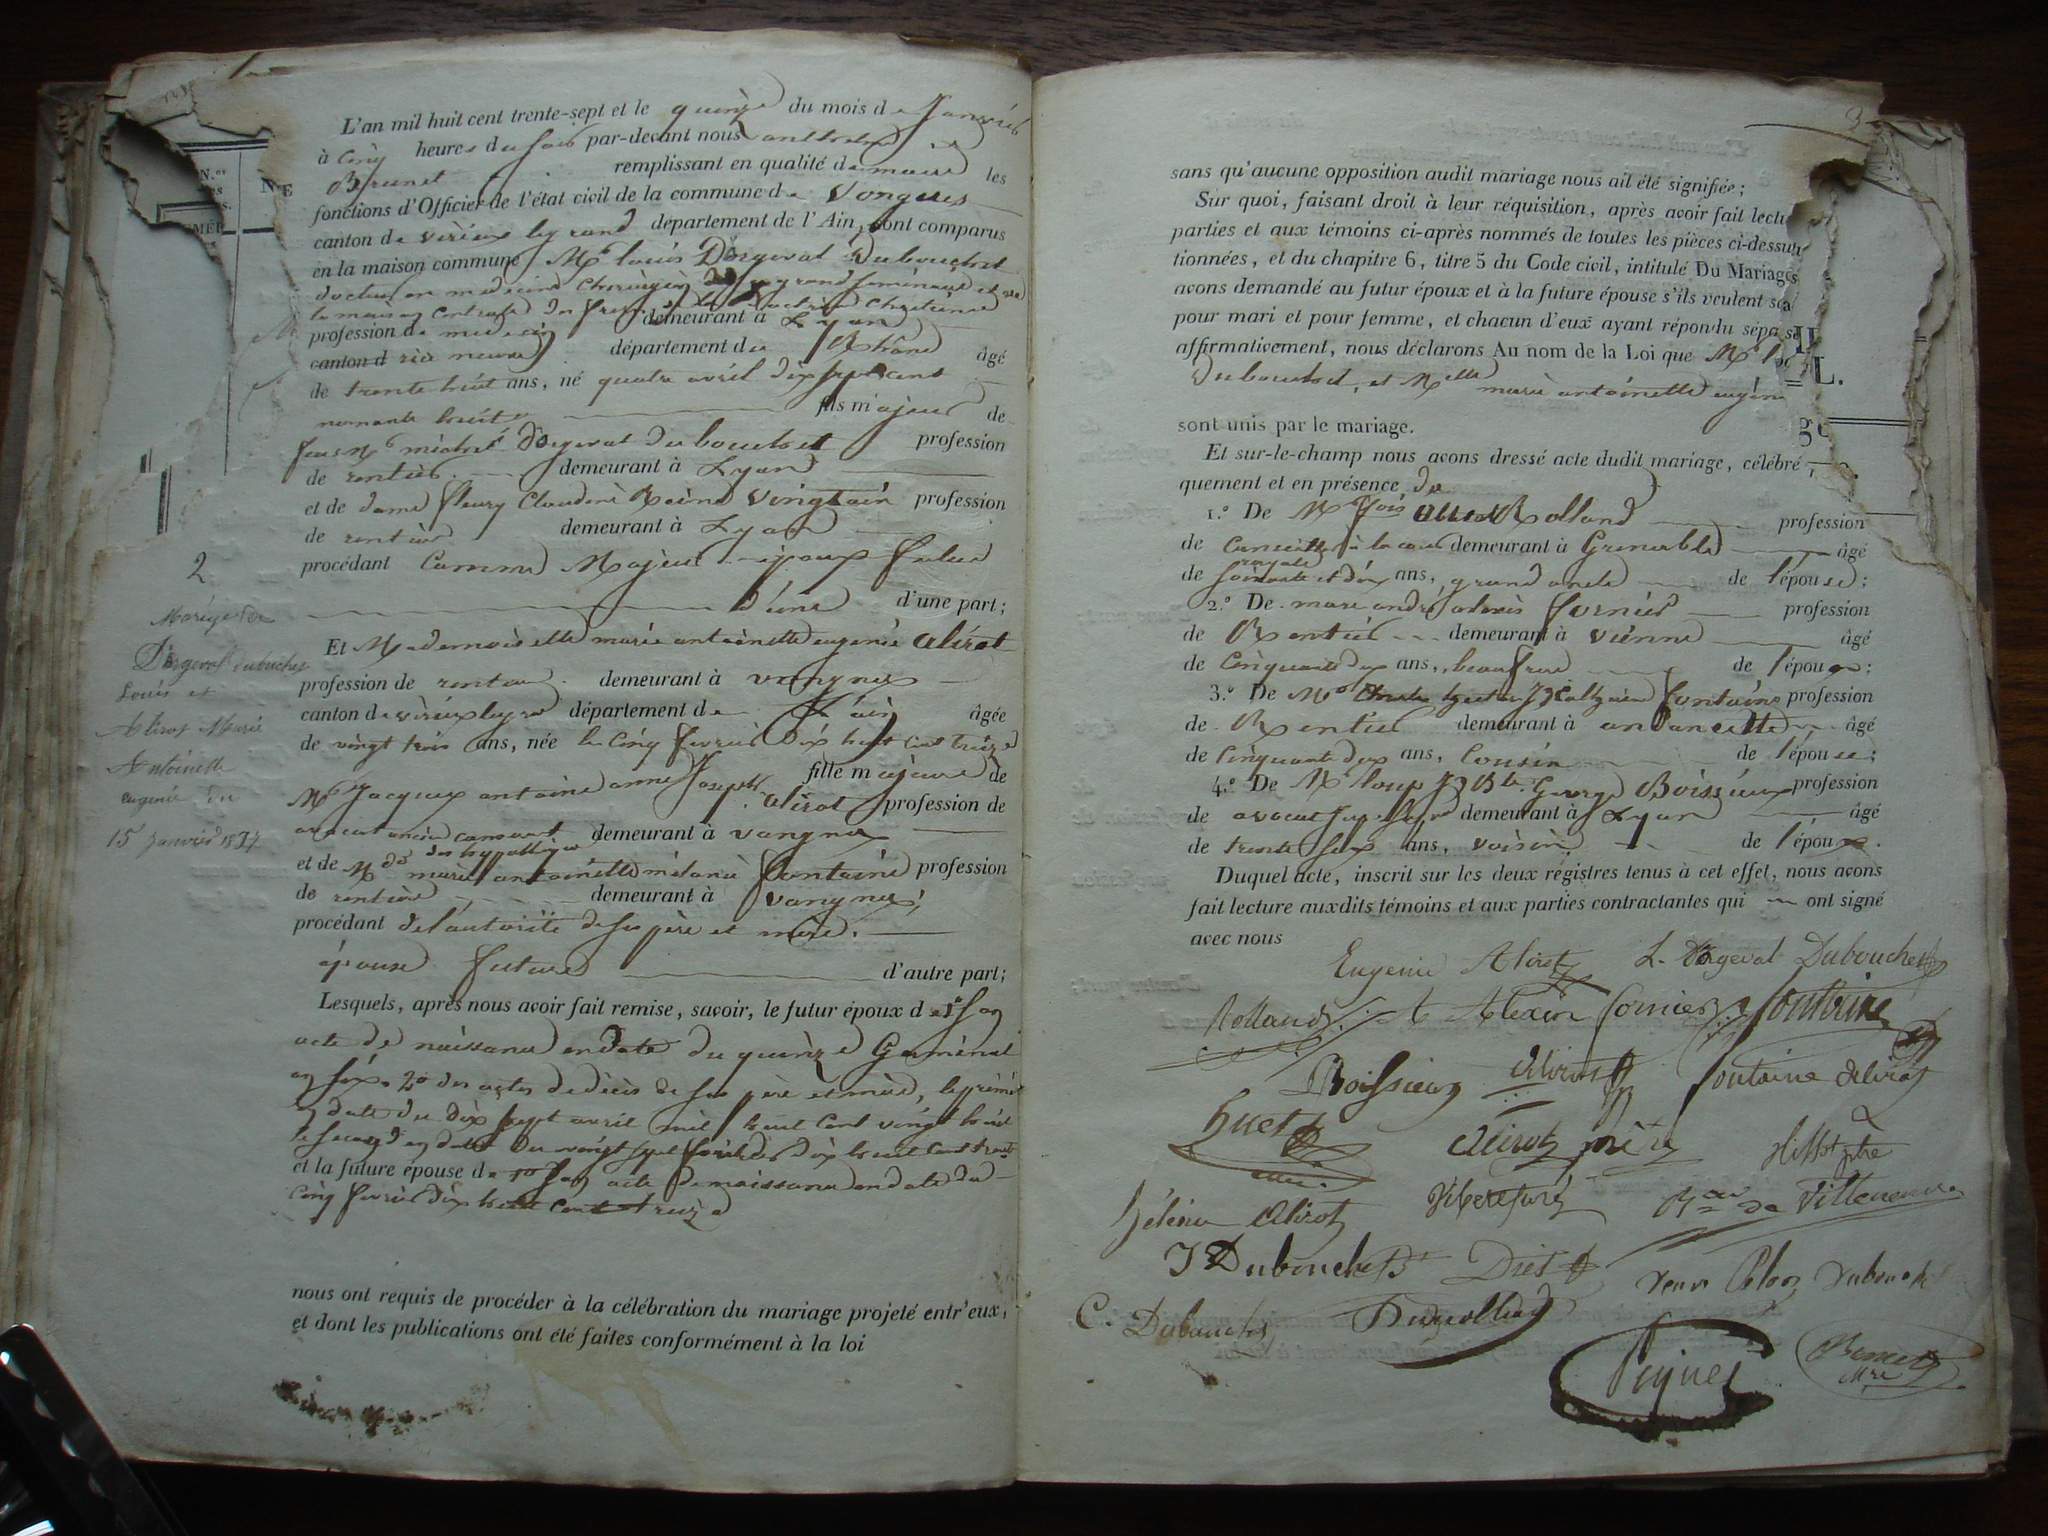 L'an mil huit cent trente-sept et le quinze du mois de Janvier
à cinq heures du soir par-devant nous anthelme
Brunet remplissant en qualité de maire les
fonctions d'Officier de l'état civil de la commune de Vongnes
canton de virieux le grand département de l'Ain, sont comparus
en la maison commune Mr louis Dorgeval Dubouchet
docteur en medecine Chirurgien du grand seminaire et de
la maison centrale des freres de la doctrine Chretienne
profession de medecin demeurant à Lyon
canton d rive neuve département du Rhône âgé
de trente huit ans, né quatre avril dix sept cent
nonante huit fils majeur de
feu Mr michel dorgeval dubouchet profession
de rentier demeurant à Lyon
et de dame fleury Claudine Reine Vingtain profession
de rentière demeurant à Lyon
procédant comme Majeur époux futur
d'une d'une part;
Et Mademoiselle marie antoinette eugenie alirot
profession de rentière demeurant à vongnes
canton de virieux legrand département de L'ain âgée
de vingt trois ans, née le cinq fevrier dix huit cent treize
fille majeure de
Mr Jacques antoine anne Joseph alirot profession de
avocat ancien conservat
des hypothèques demeurant à vongnes
et de Mde marie antoinette mélanie fontaine profession
de rentière demeurant à vongnes,
procédant de l'autorité de ses père et mère.
épouse future d'autre part;
Lesquels, après nous avoir fait remise, savoir, le futur époux de 1° son
acte de naissance en date du quinze Germinal
an six. 2° des actes de décès de ses père et mère, le premier
en date du dix sept avril mil huit cent vingt huit
le second en date du vingt sept dix huit cent trente
et la future épouse de 1° son acte de naissance en date du
cinq fevrier dix huit cent treize
nous ont requis de procéder à la célébration du mariage projeté entr'eux,
et dont les publications ont été faites conformément à la loi
2
Mariage de
Dorgeval dubouchet
Louis et
Alirot Marie
Antoinette
eugenie du
15 janvier 1837
3
sans qu'aucune opposition audit mariage nous ait été signifiée;
Sur quoi, faisant droit à leur réquisition, après avoir fait lectu
parties et aux témoins ci-après nommés de toutes les pièces ci-dessus
tionnées, et du chapitre 6, titre 5 du Code civil, intitulé Du Mariage,
avons demandé au futur époux et à la future épouse s'ils veulent se
pour mari et pour femme, et chacun d'eux ayant répondu sépa
affirmativement, nous déclarons Au nom de la Loi que Mr
Dubouchet, et Melle marie antoinette eugén
sont unis par le mariage.
Et sur-le-champ nous avons dressé acte dudit mariage, célébré
quement et en présence de
1.° De Mr fois Rolland profession
de conseiller à la cour royale demeurant à Grenoble âgé
de soixante et dix ans, grand oncle de l'épouse;
2.° De marc andré alexis fornier profession
de Rentier demeurant à vienne âgé
de cinquante deux ans, beau frere de l'époux;
3.° De Mr fontaine profession
de Rentier demeurant à ancette âgé
de cinquante deux ans, cousin de l'épouse;
4.° De Mr loup J B te George Boissieux profession
de avocat demeurant à Lyon âgé
de trente six ans, voisin de l'époux.
Duquel acte, inscrit sur les deux régistres tenus à cet effet, nous avons
fait lecture auxdits témoins et aux parties contractantes qui ont signé
avec nous
Eugenie Alirot L. Dorgeval Dubouchet
Rolland A Alexis fornier fontaine
Boissieux Alirot fontaine Alirot
huet Alirot
hélène Alirot de Villeneuve
J Dubouchet Diet veuve Dubouchet
C. Dubouchet
Peynet Brunet
Mre